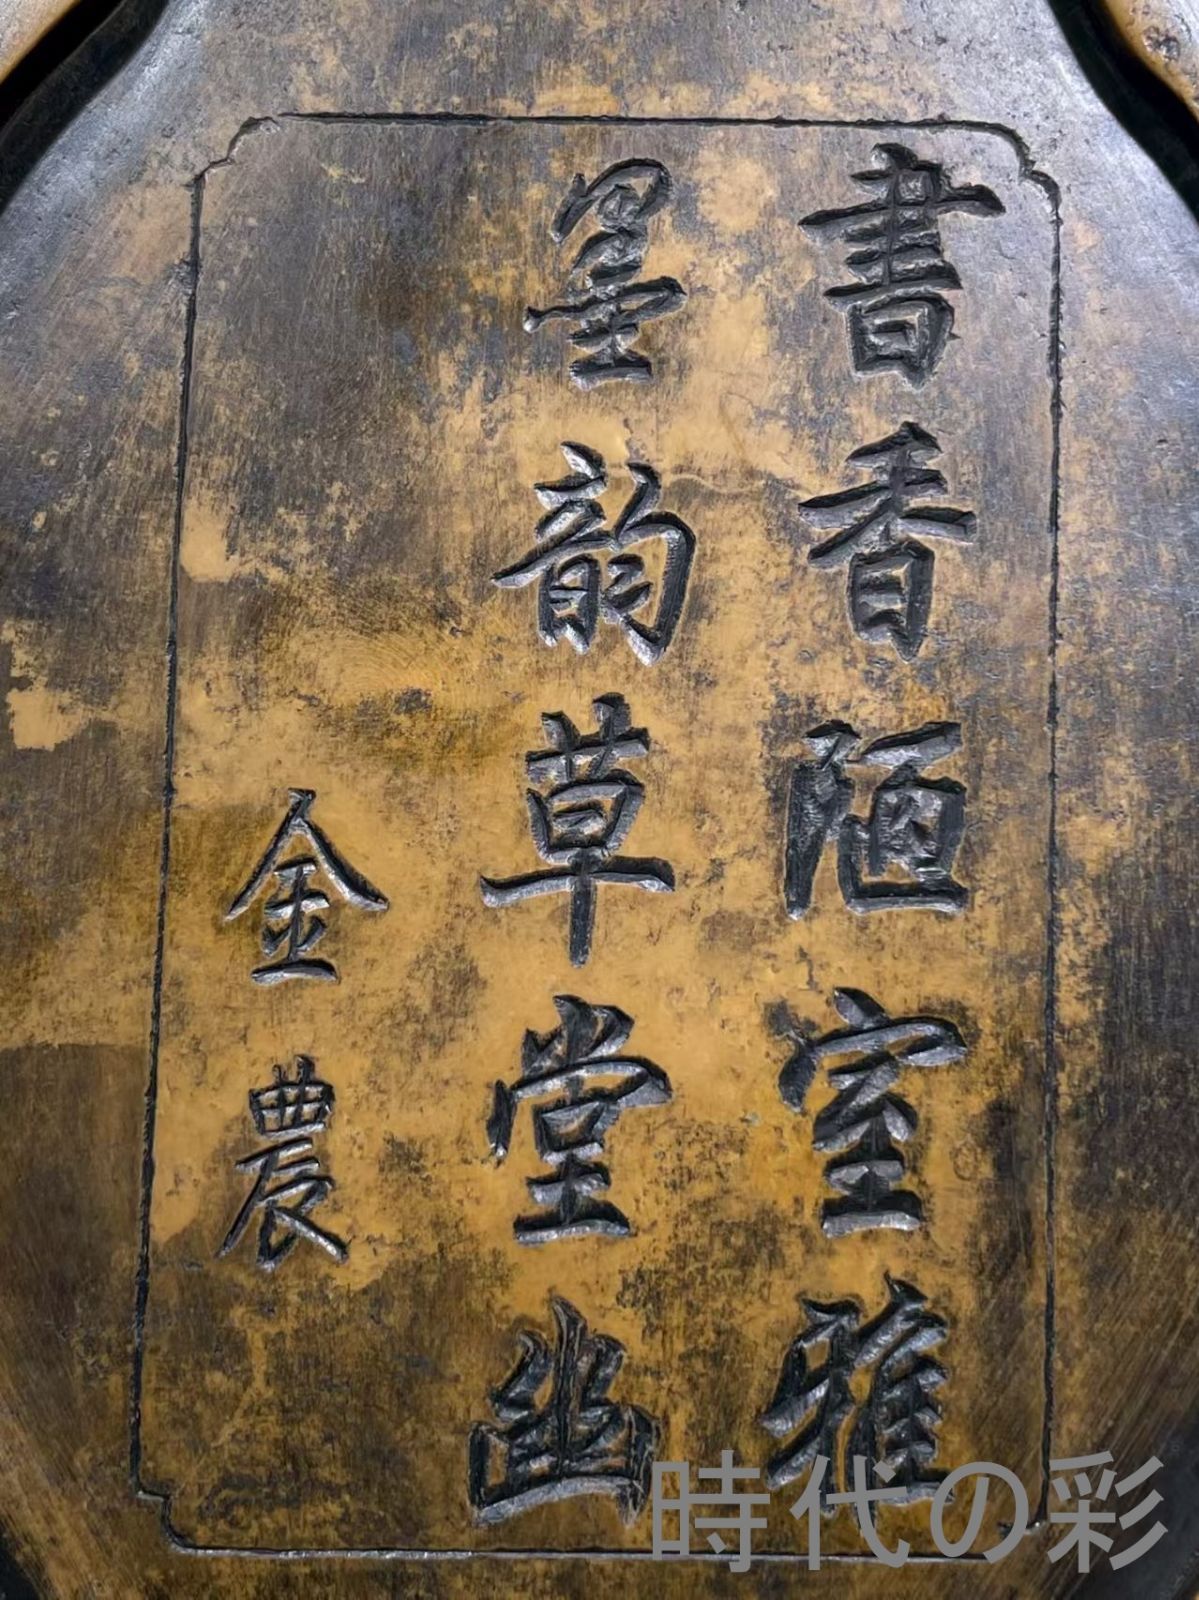 書香陋室雅
墨韵草堂幽
金農
時代の彩